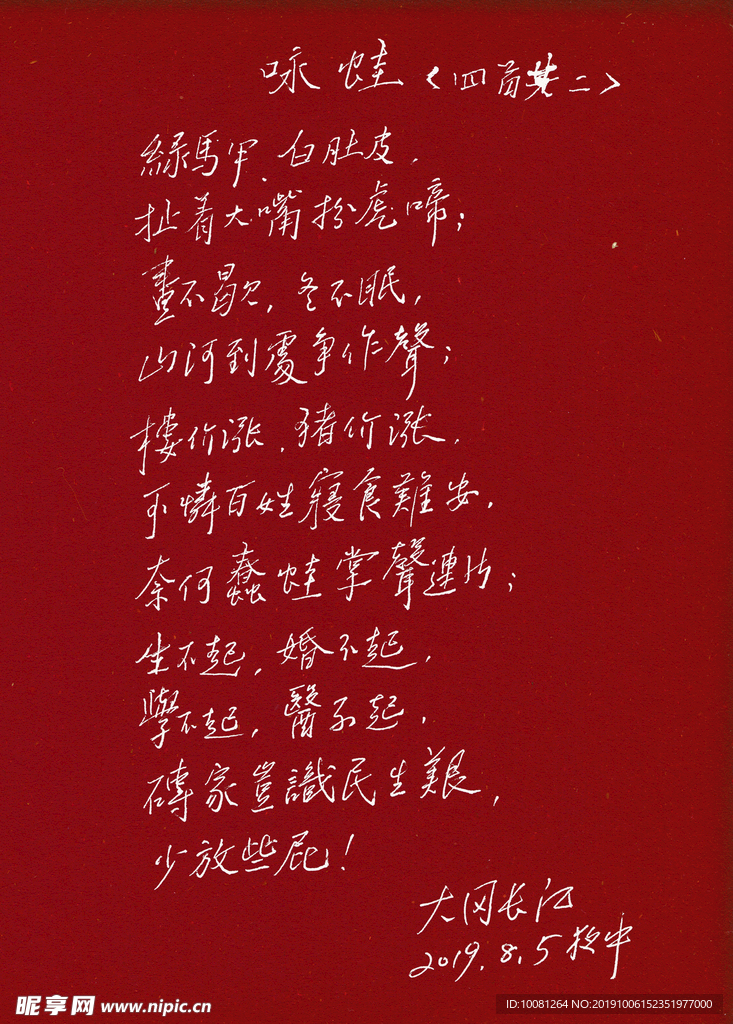 咏蛙〈四首其二〉
綠馬甲、白肚皮，
扯着大嘴扮虎啼；
晝不歇，冬不眠，
山河到處争作聲；
樓价漲，猪价漲，
可憐百姓寢食難安，
奈何蠢蛙掌聲連片；
生不起，婚不起，
學不起，醫不起，
磚家豈識民生艱，
少放些屁！
大冈长江
2019.8.5
昵享网 www.nipic.cn
ID:10081264 NO:20191006152351977000